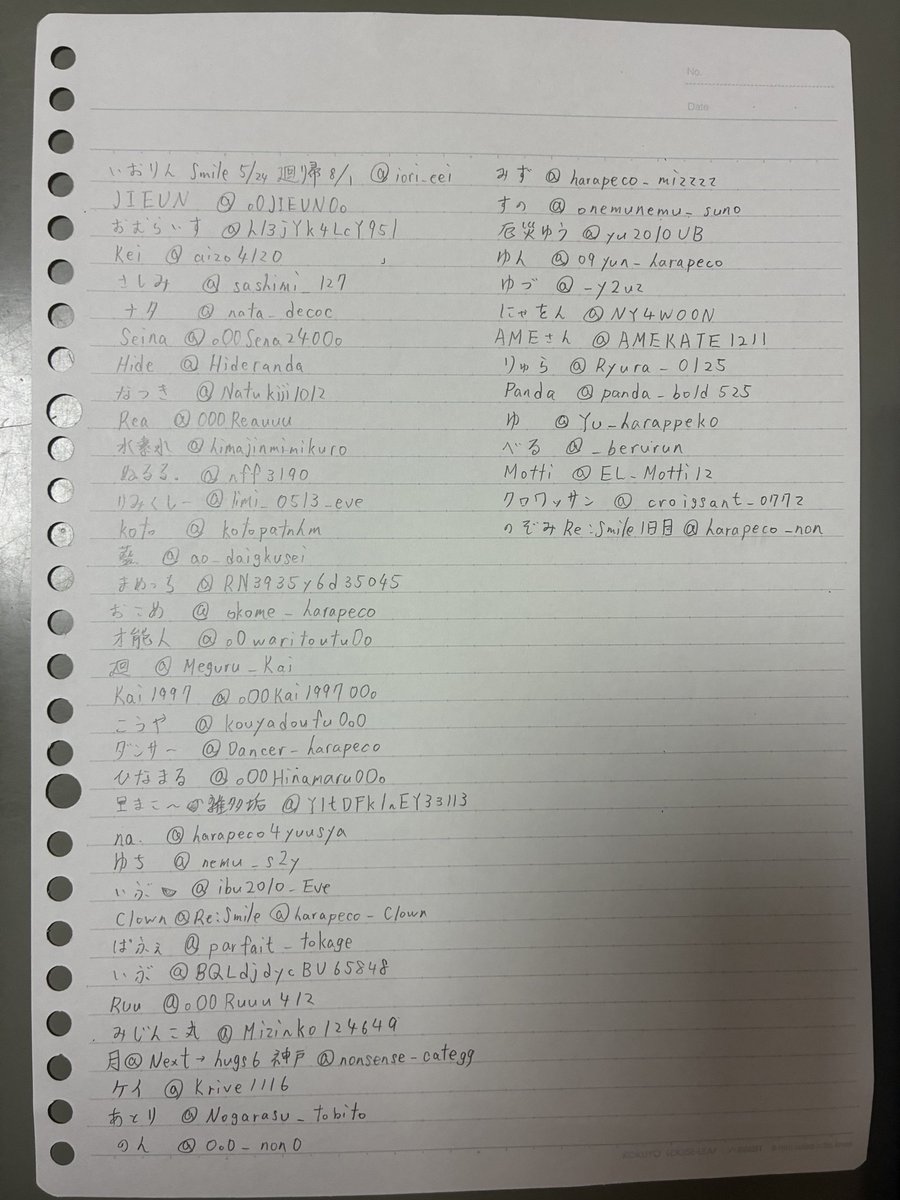 No.
Date
いおりん Smile 5/24 廻り帰 8/1 @iori_eei
JIEUN @o0JIEUN0o
おむらいす @hl3jYk4LcY95l
Kei @aizo4120
さしみ @sashimi_127
ナタ @nata_decoc
Seina @o00Sena2400o
Hide @Hideranda
なつき @Natukiji1012
Rea @000Reauuu
水素水 @himajinmimikuro
ぬるる. @nff3190
りみくしー @limi_0513_eve
koto @kotopatnhm
藍 @ao_daigkusei
まめっち @RN3935y6d35045
おこめ @okome_harapeco
才能人 @o0waritoutu0o
廻 @Meguru_Kai
Kai1997 @o00Kai199700o
こうや @kouyadoufu0o0
ダンサー @Dancer_harapeco
ひなまる @o00Hinamaru00o
里まこ〜 雑多垢 @YltDFk1nEY33113
na. @harapeco4yuusya
ゆち @nemu_s2y
いぶ @ibu2010_Eve
Clown@Re:Smile @harapeco_Clown
ぱふぇ @parfait_tokage
いぶ @BQLdjdycBU65848
Ruu @o00Ruuu412
みじんこ丸 @Mizinko124649
月@Next→hugs6 神戸 @nonsense_categg
ケイ @Krive1116
あとり @Nogarasu_tobito
のん @0o0_non0
みず @harapeco_mizzzz
すの @onemunemu_suno
厄災ゆう @yu2010UB
ゆん @09yun_harapeco
ゆづ @_y2uz
にゃをん @NY4WOON
AMEさん @AMEKATE1211
りゅら @Ryura_0125
Panda @panda_bold525
ゆ @Yu_harappeko
べる @_berurun
Motti @EL_Motti12
クロワッサン @croissant_0772
のぞみ Re:Smile1日目 @harapeco_non
KOKUYO LOOSE-LEAF